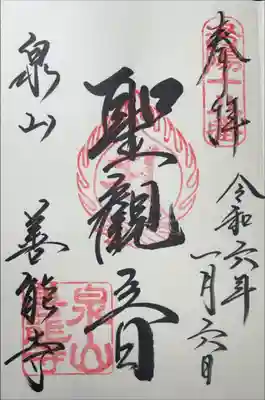 奉拝
令和六年
一月六日
聖觀音
泉山
善能寺
泉山